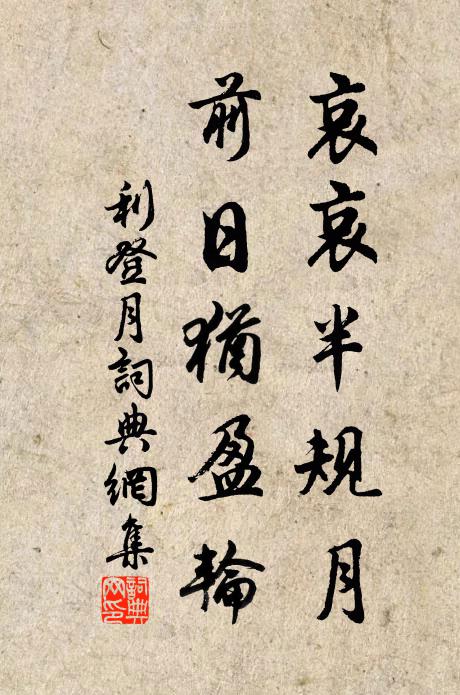 哀哀半規月
前日猶盈輪
利登月詞典網集
詞典網印